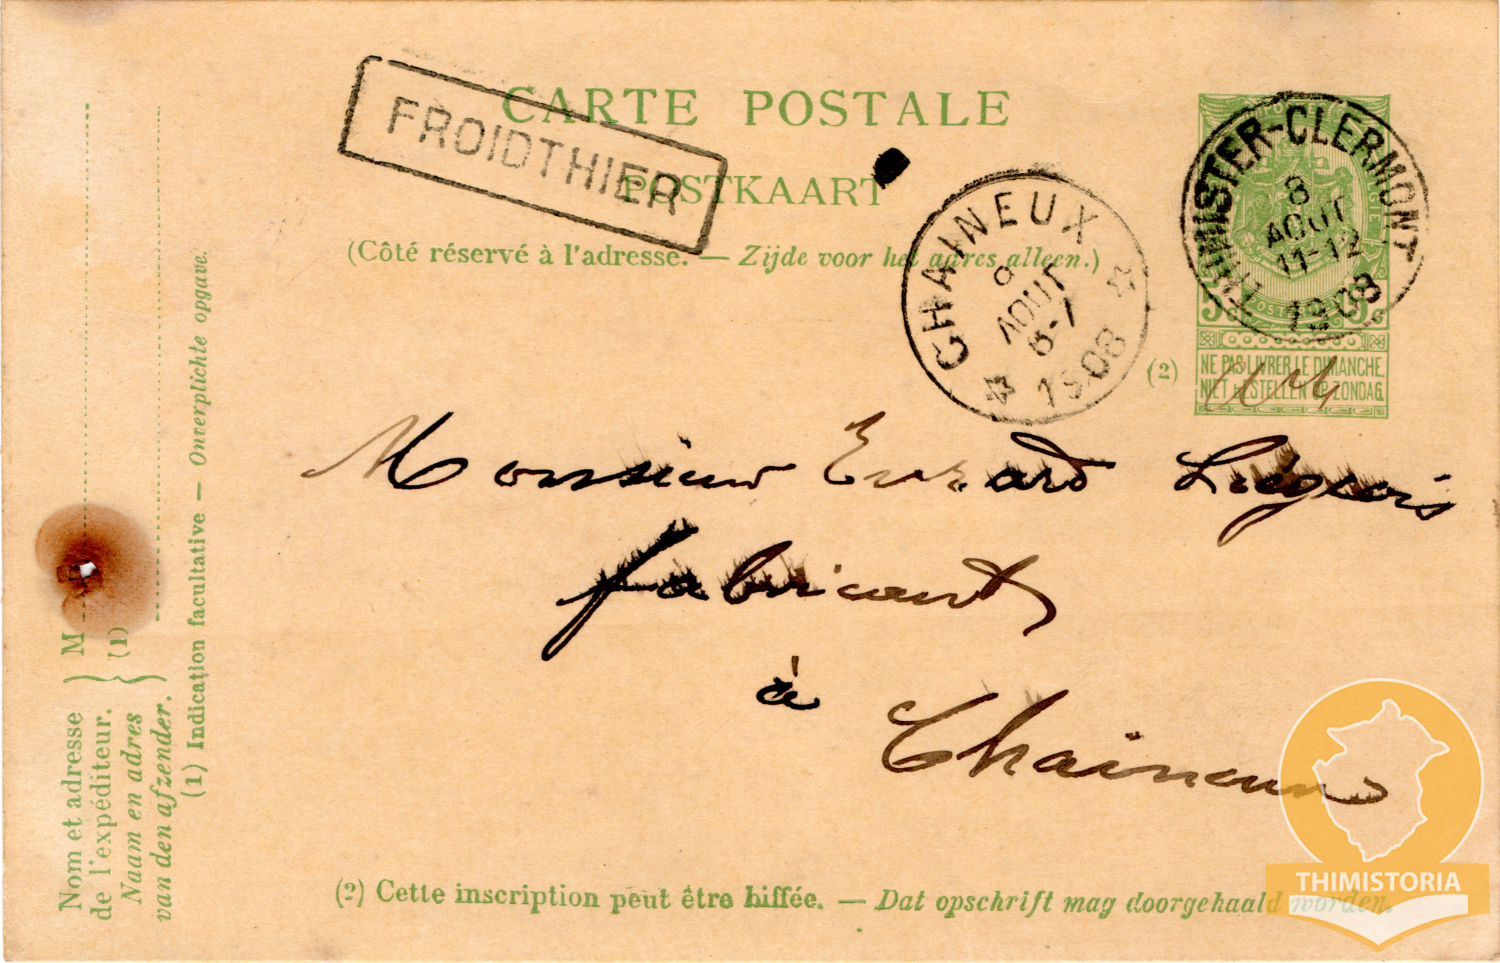 CARTE POSTALE
FROIDTHIER
POSTKAART
(Côté réservé à l'adresse. — Zijde voor het adres alleen.)
CHAINEUX
8
AOUT
6-7
1908
THIMISTER-CLERMONT
8
AOUT
11-12
1908
5c 5c
(2)
NE PAS LIVRER LE DIMANCHE.
NIET BESTELLEN OP ZONDAG.
Monsieur Evrard Liégeois
fabricant
à
Chaineux
M
(1)
Nom et adresse
de l'expéditeur.
Naam en adres
van den afzender.
(1) Indication facultative — Onverplichte opgave.
(2) Cette inscription peut être biffée. — Dat opschrift mag doorgehaald worden.
THIMISTORIA